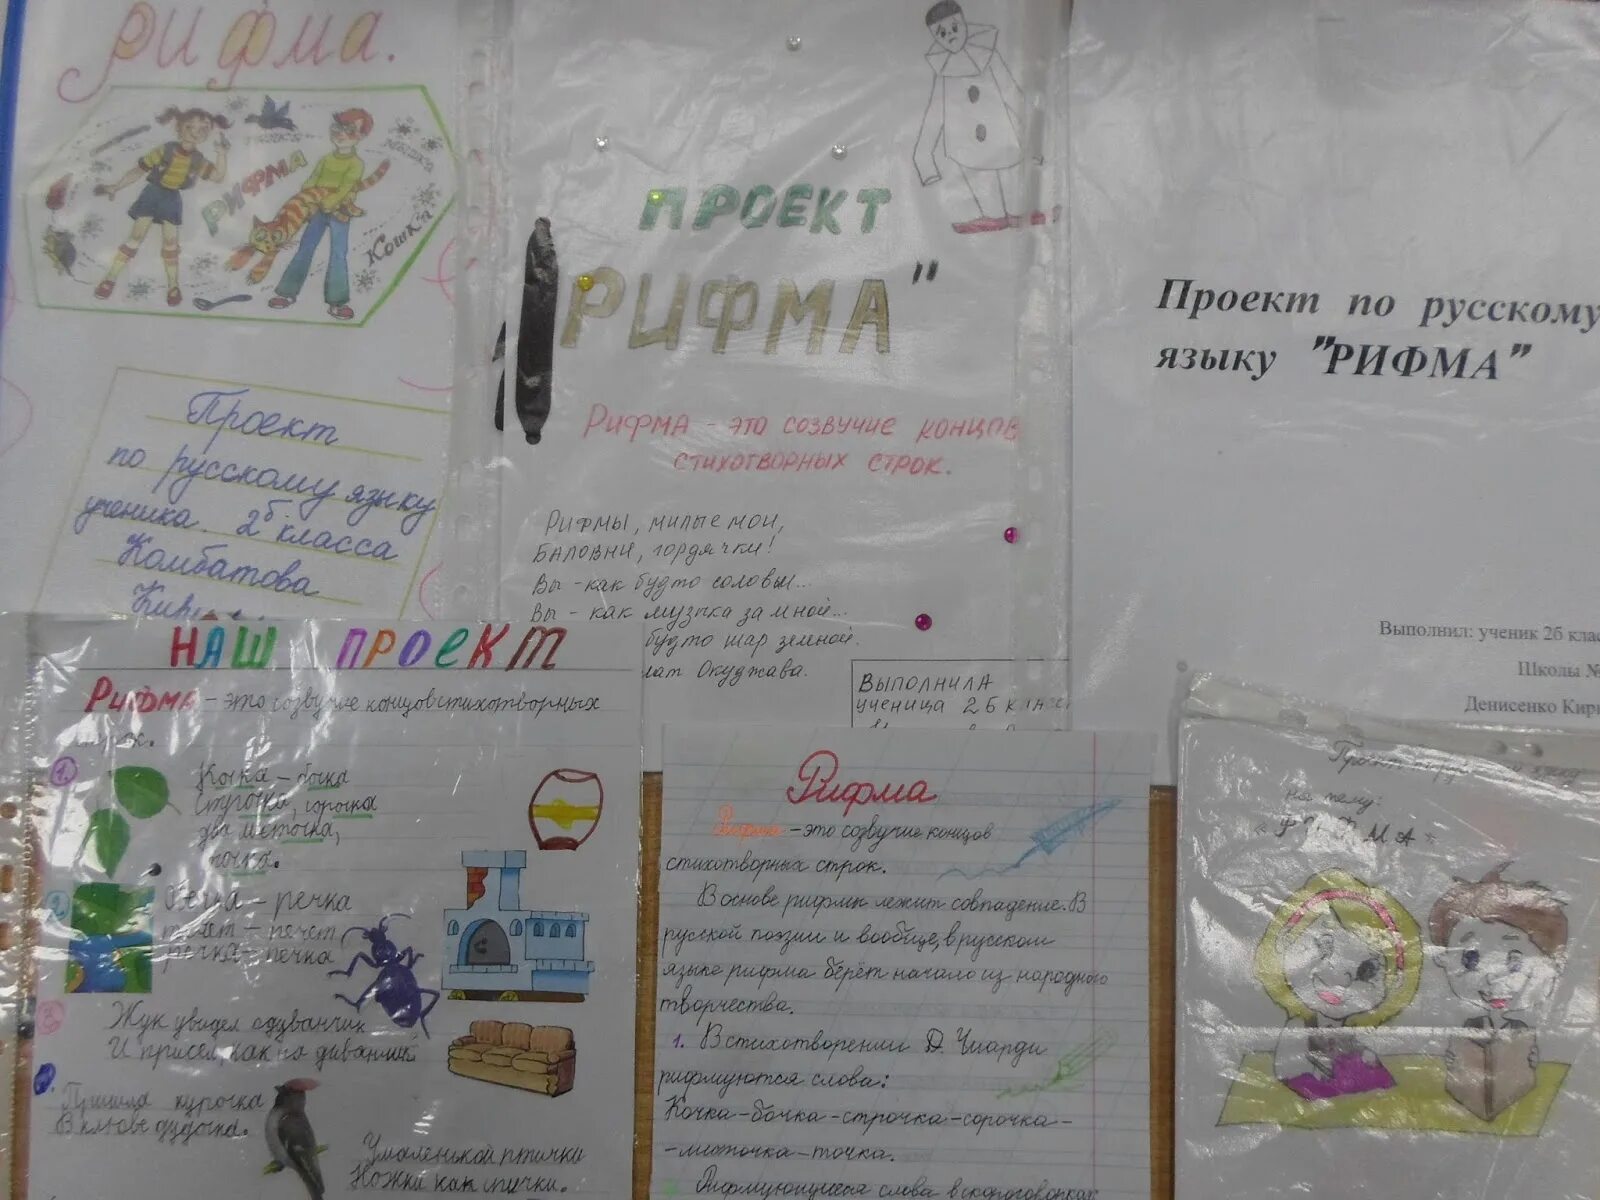 Рифма.
РИФМА
Мышка
Кошка
Проект
по русскому языку
ученика 2б класса
Комбатова
ПРОЕКТ
РИФМА"
Рифма - это созвучие концов
стихотворных строк.
Рифмы, милые мои,
Баловни, гордячки!
Вы - как будто соловьи...
Вы - как музыка за мной...
будто шар земной.
лат Окуджава.
Выполнила
ученица 2Б клас
Проект по русскому
языку "РИФМА"
Выполнил: ученик 2б клас
Школы №
Денисенко Кир
НАШ ПРОЕКТ
Рифма - это созвучие концов стихотворных
1.
Кочка - бочка
Строчка, сорочка
два листочка,
точка.
2.
Речка - печка
течёт - печёт
речка - печка
3
Жук увидел одуванчик
И присел, как на диванчик
Пришла курочка
В клюве дудочка.
У маленькой птички
Ножки как спички.
Рифма
Рифма - это созвучие концов
стихотворных строк.
В основе рифмы лежит совпадение. В
русской поэзии и вообще, в русском
языке рифма берёт начало из народного
творчества.
1. В стихотворении Д. Чиарди
рифмуются слова:
Кочка - бочка - строчка - сорочка -
- листочка - точка.
Рифмующиеся слова в скороговорках
на тему:
«РИФМА»